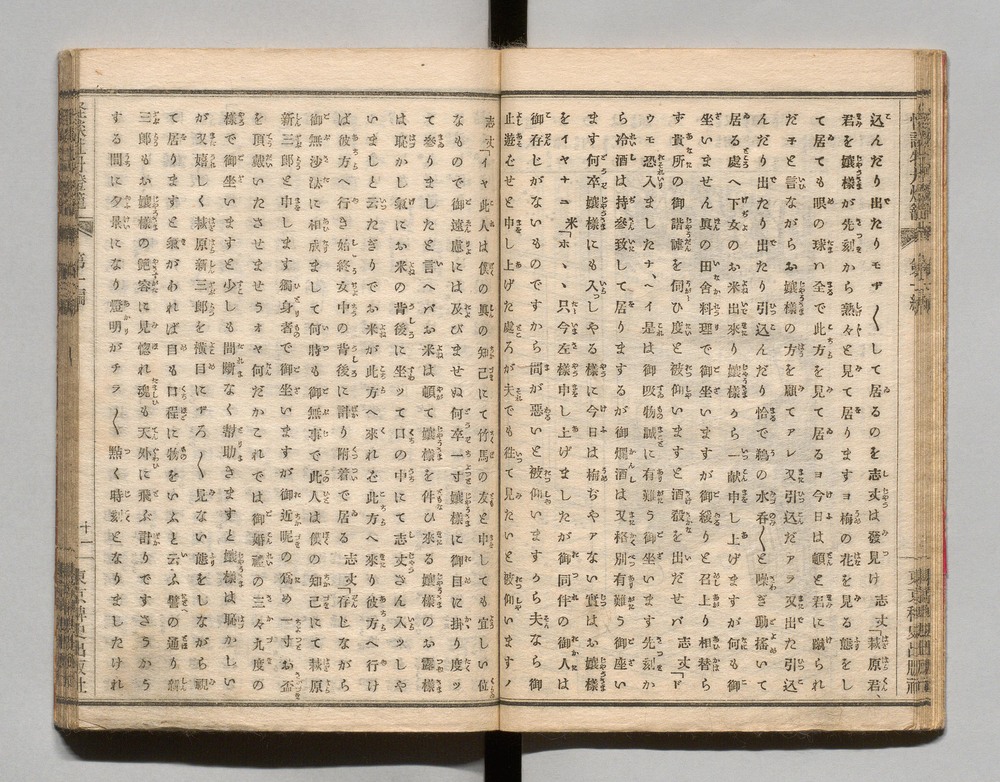 込んだり出たりモヂ〳〵して居るのを志丈は發見け 志丈「萩原君、
君を孃樣が先刻から熟々と見て居りますヨ梅の花を見る態をし
て居ても眼の球ハ全で此方を見て居るヨ今日は頓と君に蹴られ
だヱと言ながらお孃樣の方を顧てアレ又引込だアラ又出た引込
んだり出たり出たり引込んだり恰で鵜の水呑〳〵と噪ぎ動搖いて
居る處へ下女のお米出來り孃樣から一献申し上げますが何も御
坐いません眞の田舍料理で御坐いますが御緩りと召上り相替ら
す貴所の御諧謔を伺ひ度と被仰いますと酒殽を出だせバ 志丈「ド
ウモ恐入ましたナ、ヘイ是は御吸物誠に有難う御坐います先刻か
ら冷酒は持參致して居りまするが御燗酒は又格別有難う御座い
ます何卒孃樣にも入つしやる樣に今日は梅ぢやアない實はお孃樣
をイヤナニ 米「ホヽヽ只今左樣申し上げましたが御同伴の御人は
御存じがないものですから間が惡いと被仰いますから夫なら御
止遊せと申し上げた處ろが夫でも徃て見たいと被仰いますノ
志丈イヤ此人は僕の眞の知己にて竹馬の友と申しても宜しい位
なもので御遠慮には及びませぬ何卒一寸孃樣に御目に掛り度ッ
て參りましたと言へバお米は頓て孃樣を伴ひ來る孃樣のお露樣
は恥かし氣にお米の背後に坐ッて口の中にて志丈さん入ッしや
いましと云たぎりでお米が此方へ來れを此方へ來り彼方へ行け
ば彼方へ行き始終女中の背後に計り附着で居る 志丈「存じながら
御無沙汰に相成まして何時も御無事で此人は僕の知己にて萩原
新三郎と申します獨身者で御坐いますが御近昵の爲め一寸お盃
を頂戴いたさせませうオヤ何だかこれでは御婚禮の三々九度の
樣で御坐いますと少しも間斷なく幇助きますと孃樣は恥かしい
が又嬉しく萩原新三郎を横目にヂろ〳〵見ない態をしながら視
て居りますと氣がわれば目も口程に物をいふと云ふ譬の通り新
三郎もお孃樣の艶容に見惚れ魂も天外に飛ぶ計りですさうかう
する間に夕景になり燈明がチラ〳〵點く時刻となりましたけれ
第二編
十一
東京稗史出版社